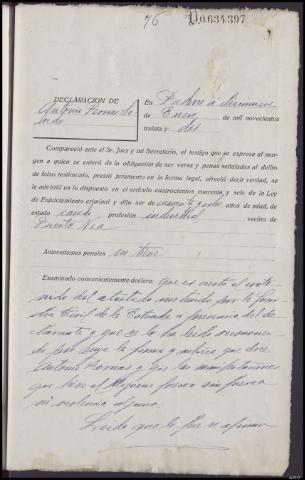 76
D0.634.397
DECLARACION DE
Antonio Hermo
En Padron a diecinueve
de Enero de mil novecientos
treinta y dos
Compareció ante el Sr. Juez y mi Secretario, el testigo que se expresa al mar-
gen a quien se enteró de la obligación de ser veraz y penas señaladas al delito
de falso testimonio, prestó juramento en la forma legal, ofreció decir verdad, se
le advirtió en lo dispuesto en el artículo cuatrocientos cuarenta y seis de la Ley
de Enjuiciamiento criminal y dijo ser de cuarenta y años de edad, de
estado casado, profesión industrial, vecino de
Puente Vea
Antecedentes penales no tiene
Examinado convenientemente declara: que es cierto el conte
nido del atestado instruido por la Guar
dia Civil de la Estrada a presencia del de
clarante y que se le ha leido reconocien
do por suya la firma y rubrica que dice
Antonio Hermo y que las manifestaciones
que hizo el fueron sin fuerza
ni violencia alguna.
Leido que le fue se afirma